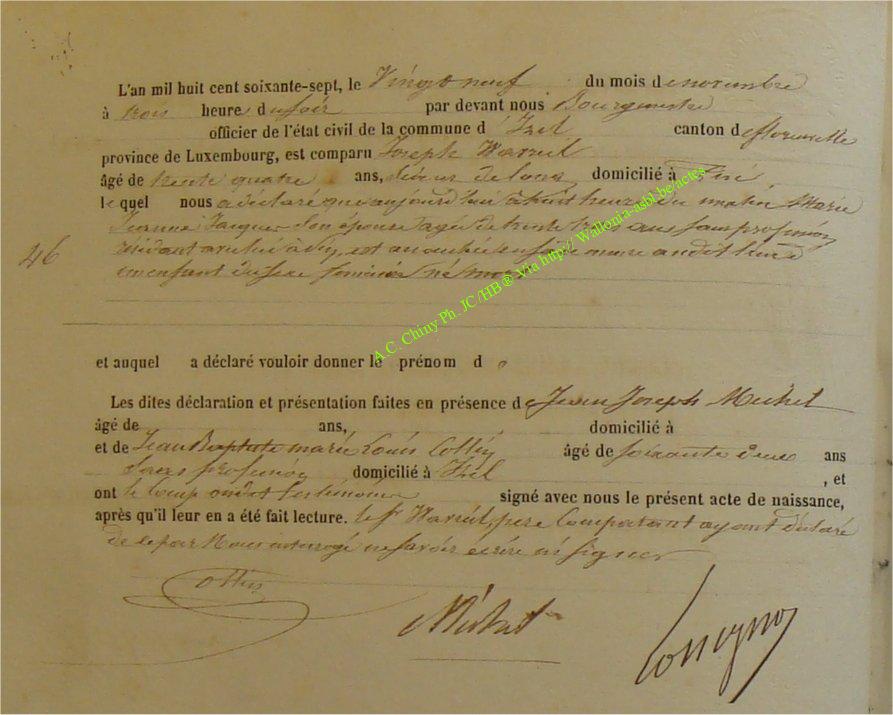 L'an mil huit cent soixante-sept, le Vingt neuf du mois de novembre
à trois heure du soir par devant nous Bourgmestre
officier de l'état civil de la commune d' Izel canton de florenville
province de Luxembourg, est comparu Joseph Warrut
âgé de trente quatre ans, domicilié à Izel
le quel nous a déclaré que aujourd'hui à huit heure du matin Marie
Jeanne Jacques son épouse agée de trente ans sans profession
46
enfant du sexe féminin né mort
et auquel a déclaré vouloir donner le prénom d
Les dites déclaration et présentation faites en présence de Jean Joseph Michel
âgé de ans, domicilié à
et de Jean Baptiste marie Louis Collin âgé de soixante deux ans
sans profession domicilié à Izel , et
ont signé avec nous le présent acte de naissance,
après qu'il leur en a été fait lecture. le Sr Warrut, père Comparant ayant déclaré
de ce par Nous interrogé ne savoir écrire ni signer
Collin
Michel
A.C. Chiny Ph. JC/HB ® Via http:// Wallonia-asbl.be/actes